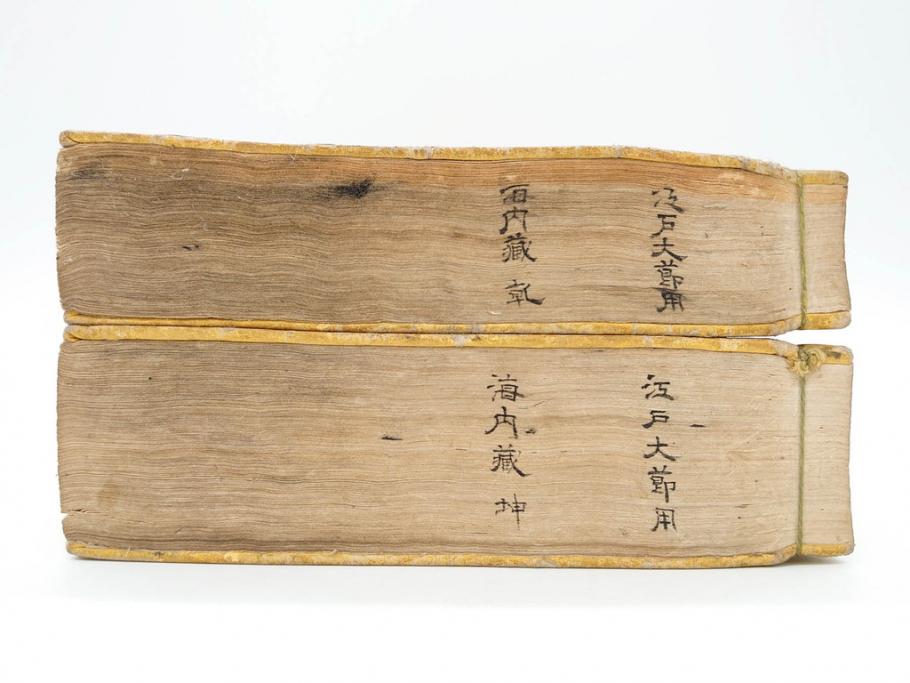 江戸大節用
海内藏 乾
江戸大節用
海内藏 坤